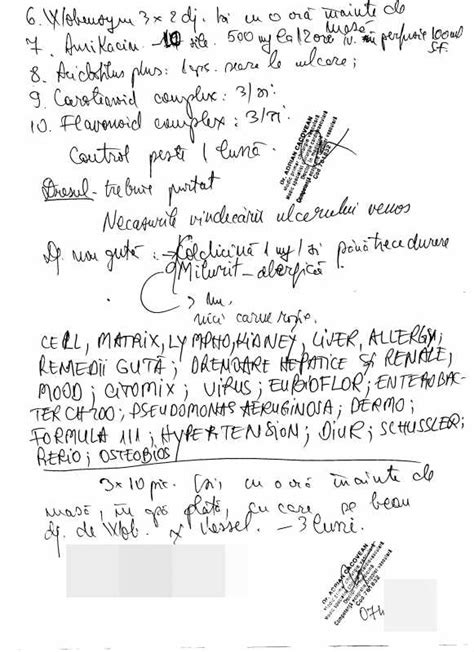 6. Wobenzym 3 x 2 dj. /zi cu o oră înainte de
masă
7. Amikacin - 10 zile. 500 mg la 12 ore i.v. în perfuzie 100 ml
SF.
8. Acidofilus plus: 1 cps. seara la culcare;
9. Carotenoid complex: 3/zi.
10. Flavonoid complex: 3/zi.
Control peste 1 lună.
Dr. ADRIAN CACOVEAN
Dresul - trebuie purtat
Necazurile vindecării ulcerului venos
Dj. nou gută: → Colchicină 1 mg/zi până trece durere
Milurit - alergică
nu,
nici carne roșie.
CELL, MATRIX, LYMPHO, KIDNEY, LIVER, ALLERGY;
REMEDII GUTĂ; DRENOARE HEPATICE ȘI RENALE,
MOOD; CITOMIX; VIRUS; EUBIOFLOR; ENTEROBAC-
TER CH200; PSEUDOMONAS AERUGINOSA; DERMO;
FORMULA 111; HYPERTENSION; DIUR; SCHUSSLER;
RERIO; OSTEOBIOS
3 x 10 pic. /zi, cu o oră înainte de
masă, în apă plată, cu care se beau
dj. de Wob. x Vessel. - 3 luni.
Dr. ADRIAN CACOVEAN
074